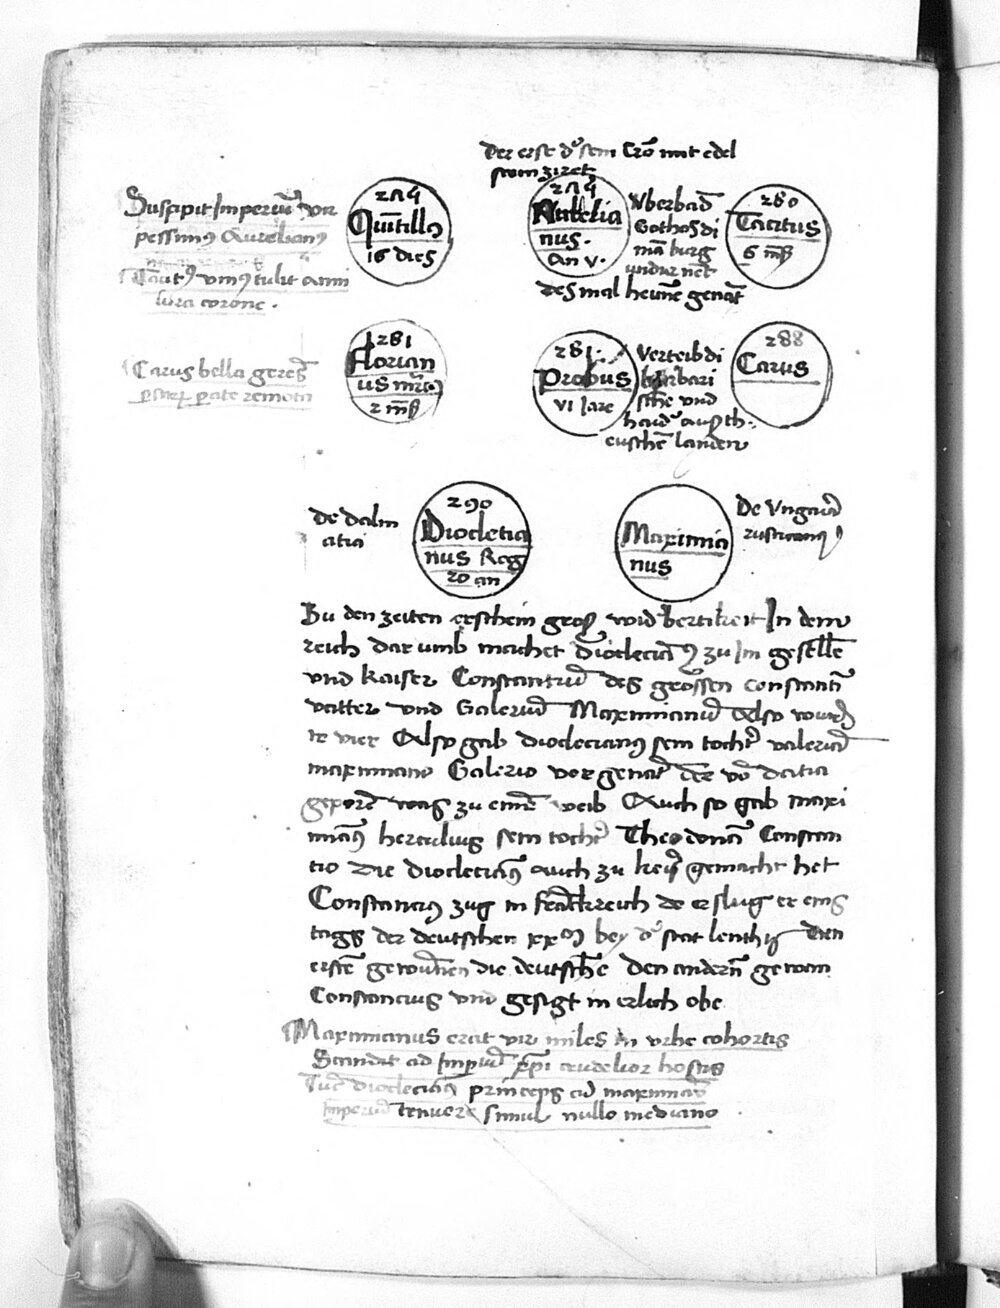 Der erst d' sein Cro mit edel
stain ziret
Suscipit Imperiū vir
pessimus Aurelianus
tulit anni
coronē.
274
Quintillus
16 dies
274
Aurelia
nus.
an v.
Vberbad
Gothos di
man burg
vndar net
desmal heune genat
280
Tacitus
6 mēs
Carus bella gerens
pate remota
281
Florian
us
2 mēs
281.
Probus
vi Jare
Vertribdi
barbari
sche vnd
haid' auß th
euschē landen
288
Carus
de dalm
atia
290
Diocletia
nus Reg
20 an
Maximia
nus
De Vngariā
rusticanus
Zu den zeiten erschein groß wid'bertikeit In dem
reich dar umb machet Dioclecianus zu Im geselle
vnd kaiser Constantiū des grossen constantī
vatter vnd Galeriū Maximianū Also wurdē
ir vier Also gab dioclecianus sein tocht' valeriā
maximiano Galerio vor genāt der vō dacia
geporē was zu einē weib Auch so gab maxi
mianus herculius sein tocht' Theodoriā Constan
tio die dioclecianus auch zu keis' gemacht het
Constancius zug in franckreich da erslug er eins
tags der deutschen xx m bey d' stat Den
ersten gewunnen die deutsche Den andern gewan
Constancius vnd gesigt in erlich obe
Maximianus erat vir miles in vrbe cohortis
Scandit ad Imperiū xpi crudelior hostis
Tūc dioclecianus princeps cū maximiano
Imperiū tenuere simul nullo mediano